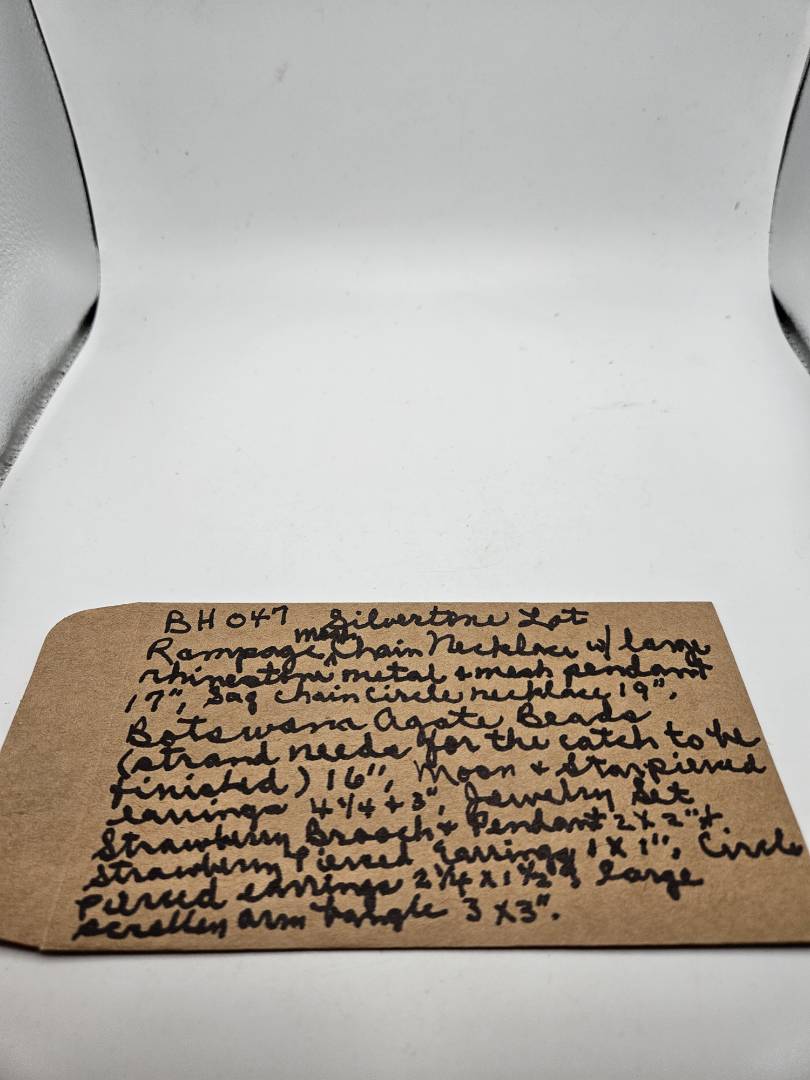 BH 047 Silvertone Lot
Rampage mesh Chain Necklace w/ large
rhinestone metal + mesh pendant
17", Sag chain circle necklace 19",
Botswana Agate Beads
(strand needs for the catch to be
finished) 16", Moon + Star pierced
earrings 4 1/4 + 3", Jewelry Set
Strawberry Brooch + Pendant 2 x 2" +
Strawberry Pierced Earrings 1 x 1", Circle
pierced earrings 2 1/4 x 1 1/2", large
arm bangle 3 x 3".